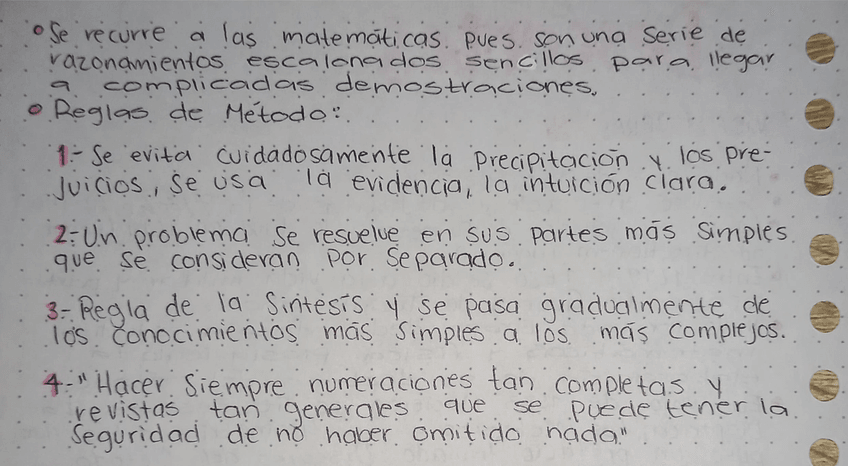 • Se recurre a las matemáticas pues son una serie de
razonamientos escalonados sencillos para llegar
a complicadas demostraciones.
• Reglas de Método:
1- Se evita cuidadosamente la precipitación y los pre-
juicios, se usa la evidencia, la intuición clara.
2- Un problema se resuelve en sus partes más simples
que se consideran por separado.
3- Regla de la Síntesis y se pasa gradualmente de
los conocimientos más simples a los más complejos.
4- "Hacer siempre numeraciones tan completas y
revistas tan generales que se puede tener la
seguridad de no haber omitido nada"